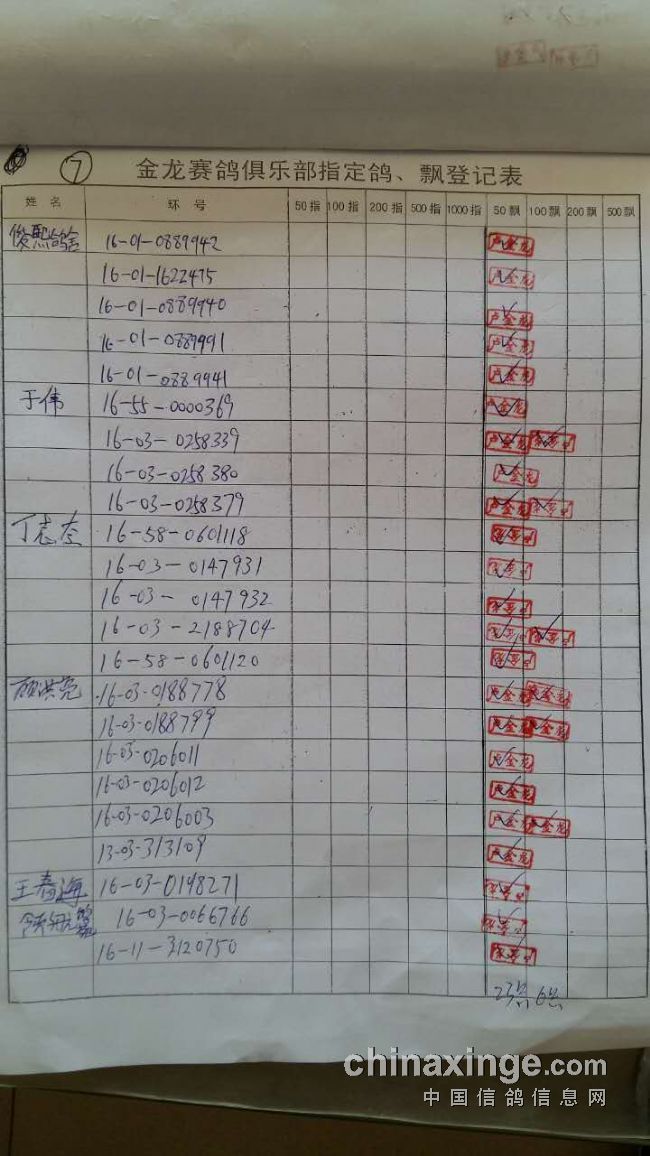 ⑦ 金龙赛鸽俱乐部指定鸽、飘登记表
姓名 环号 50指 100指 200指 500指 1000指 50飘 100飘 200飘 500飘
俊熙鸽舍 16-01-0889942 卢金龙
16-01-1622475 卢金龙
16-01-0889940 卢金龙
16-01-0889991 卢金龙
16-01-0889941 卢金龙
于伟 16-55-0000369 卢金龙
16-03-0258339 卢金龙
16-03-0258380 卢金龙
16-03-0258379 卢金龙
丁志奎 16-58-0601118
16-03-0147931
16-03-0147932
16-03-2188704
16-58-0601120
顾洪亮 16-03-0188778 卢金龙 卢金龙
16-03-0188799 卢金龙 卢金龙
16-03-0206011 卢金龙
16-03-0206012 卢金龙
16-03-0206003 卢金龙 卢金龙
13-03-313109 卢金龙
王春海 16-03-0198271
领航 16-03-0066766
16-11-3120750
23 6
chinaxinge.com
中国信鸽信息网